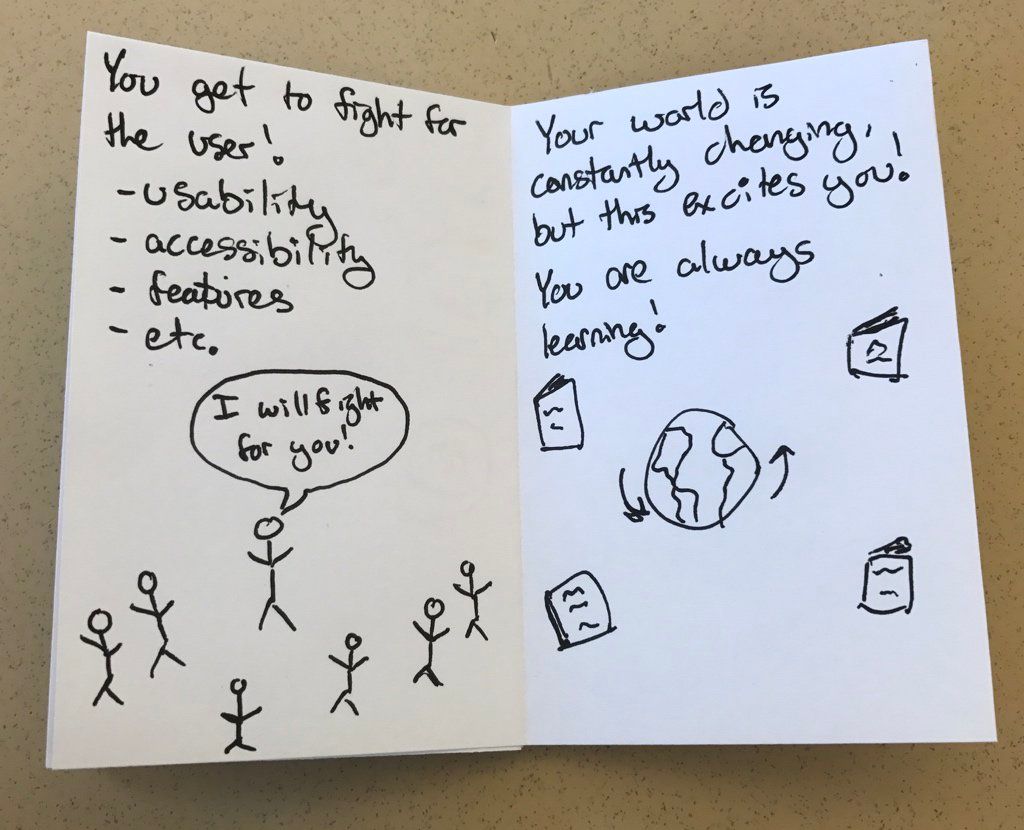 You get to fight for
the user!
- usability
- accessibility
- features
- etc.
I will fight
for you!
Your world is
constantly changing,
but this excites you!
You are always
learning!